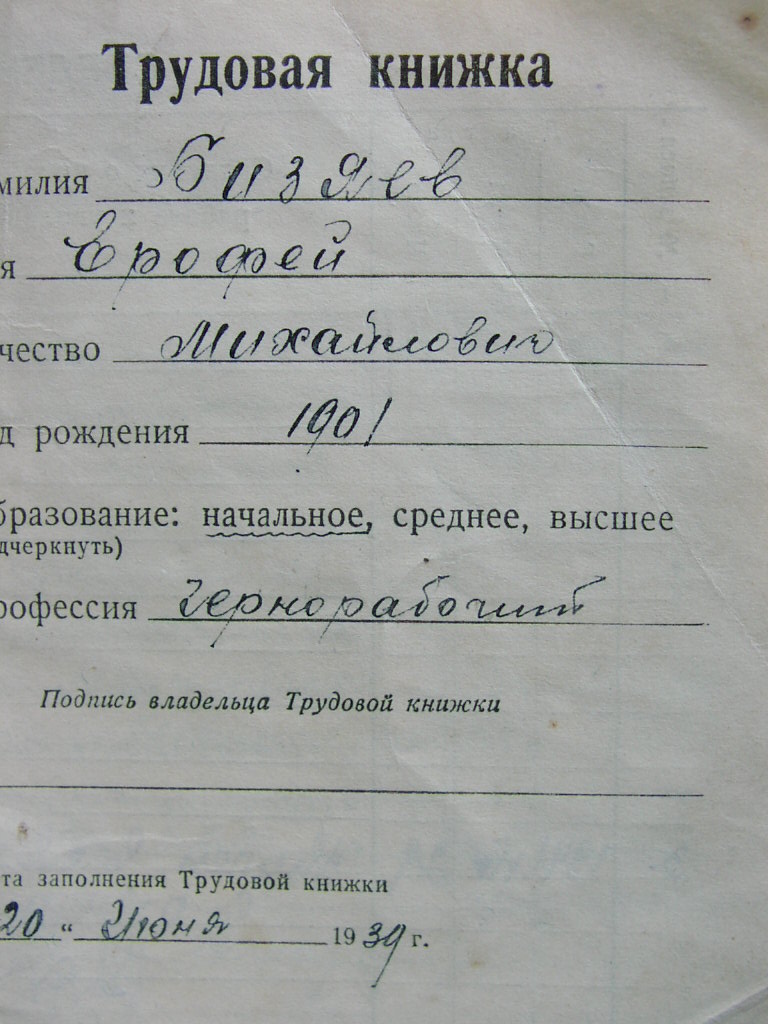 Трудовая книжка
милия Бизяев
я Ерофей
чество Михайлович
д рождения 1901
бразование: начальное, среднее, высшее
дчеркнуть)
рофессия Чернорабочий
Подпись владельца Трудовой книжки
та заполнения Трудовой книжки
20 " Июня 1939 г.